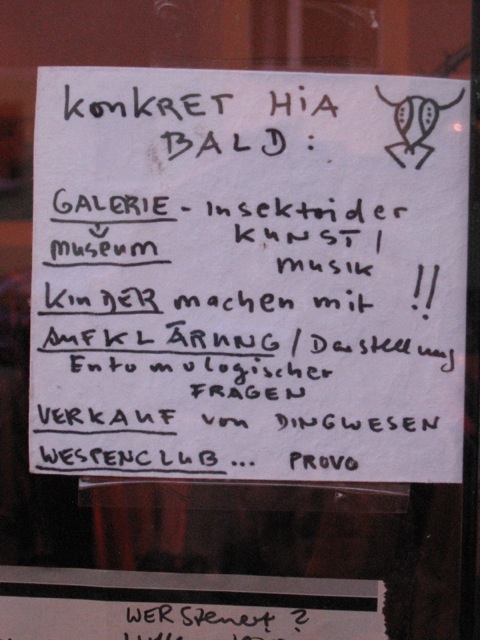 KonKRET HiA
BALD:
GALERIE - Insektoider
museum KUNST /
musik
KinDER machen mit !!
AUFKLÄRUNG / Darstellung
Entomologischer
FRAGEN
VERKAUF von DINGWESEN
WESPENCLUB... PROVO
WER